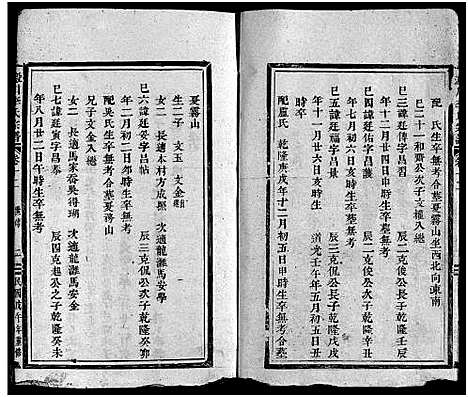 配 氏生卒無考合墓夏霧山坐西北向東南
巳二十一和齊公次子文權入繼
巳三諱廷傳字昌習 辰一克俊公長子乾隆壬辰
年十一月廿三亥時生卒墓無考
巳四諱廷 字昌護 辰一克俊公次子乾隆
年七月十六日亥時生卒墓無考
巳五諱廷 字昌 辰三克侃公長子乾隆戊戌
年十一月廿六日亥時生 道光壬午年五月初五日卒
配盧氏 乾隆庚戌年十二月初五日申時生卒無考合墓
夏霧山
生二子 文玉 文金
女二 長適本村方成照 次適龍灘馬安學
巳六諱廷 字昌帖 辰三克侃公次子乾隆癸卯
年二月初二日卯時生卒無考
配吳氏生卒無考合墓夏霧山
兄子文金入繼
女二 長適馬家畚吳得瑚 次適龍灘馬安金
巳七諱廷寅字昌 辰四克起公之子乾隆癸未
年八月廿二日午時生卒無考
民國戊午年重修